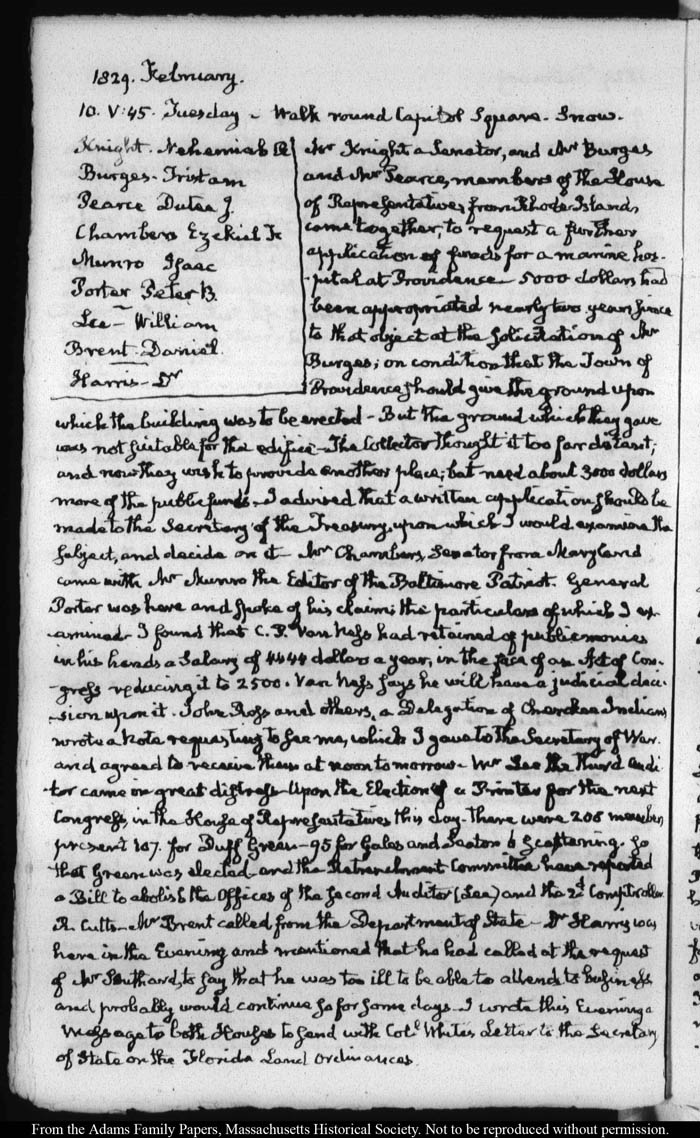 1829. February.
10. V:45. Tuesday – Walk round Capitol Square. Snow.
Knight. Nehemiah R
Burges. Tristam
Pearce Dutee J.
Chambers Ezekiel F.
Munro Isaac
Porter Peter B.
Lee – William
Brent. Daniel
Harris – Dr
Mr Knight a Senator, and Mr Burges
and Mr Pearce, members of the House
of Representatives, from Rhode-Island,
came together, to request a further
application of funds for a marine hos-
-pital at Providence – 5000 dollars had
been appropriated nearly two years since
to that object at the solicitation of Mr
Burges; on condition that the Town of
Providence should give the ground upon
which the building was to be erected – But the ground which they gave
was not suitable for the edifice – The Collector thought it too far distant;
and now they wish to provide another place; but need about 3000 dollars
more of the public funds – I advised that a written application should be
made to the Secretary of the Treasury, upon which I would examine the
subject, and decide on it – Mr Chambers, Senator from Maryland
came with Mr Munro the Editor of the Baltimore Patriot. General
Porter was here and spoke of his claim; the particulars of which I ex-
-amined – I found that C. P. Van Ness had retained of public monies
in his hands a Salary of 4444 dollars a year, in the face of an Act of Con-
-gress reducing it to 2500. Van Ness says he will have a judicial deci-
-sion upon it. John Ross and others, a Delegation of Cherokee Indians
wrote a Note requesting to see me, which I gave to the Secretary of War.
and agreed to receive them at noon to-morrow – Mr Lee the third Audi-
-tor came in great distress – Upon the Election of a Printer for the next
Congress, in the House of Representatives this day. there were 208 members
present 107. for Duff Green – 95 for Gales and Seaton 6 scattering. So
that Green was elected – and the Retrenchment Committee have reported
a Bill to abolish the Offices of the Second Auditor (Lee) and the 2d Comptroller
R. Cutts – Mr Brent called from the Department of State – Dr Harris was
here in the Evening and mentioned that he had called at the request
of Mr Southard, to say that he was too ill to be able to attend to business
and probably would continue so for some days – I wrote this Evening a
Message to both Houses to send with Coll White's Letter to the Secretary
of State on the Florida Land Ordinances.
From the Adams Family Papers, Massachusetts Historical Society. Not to be reproduced without permission.